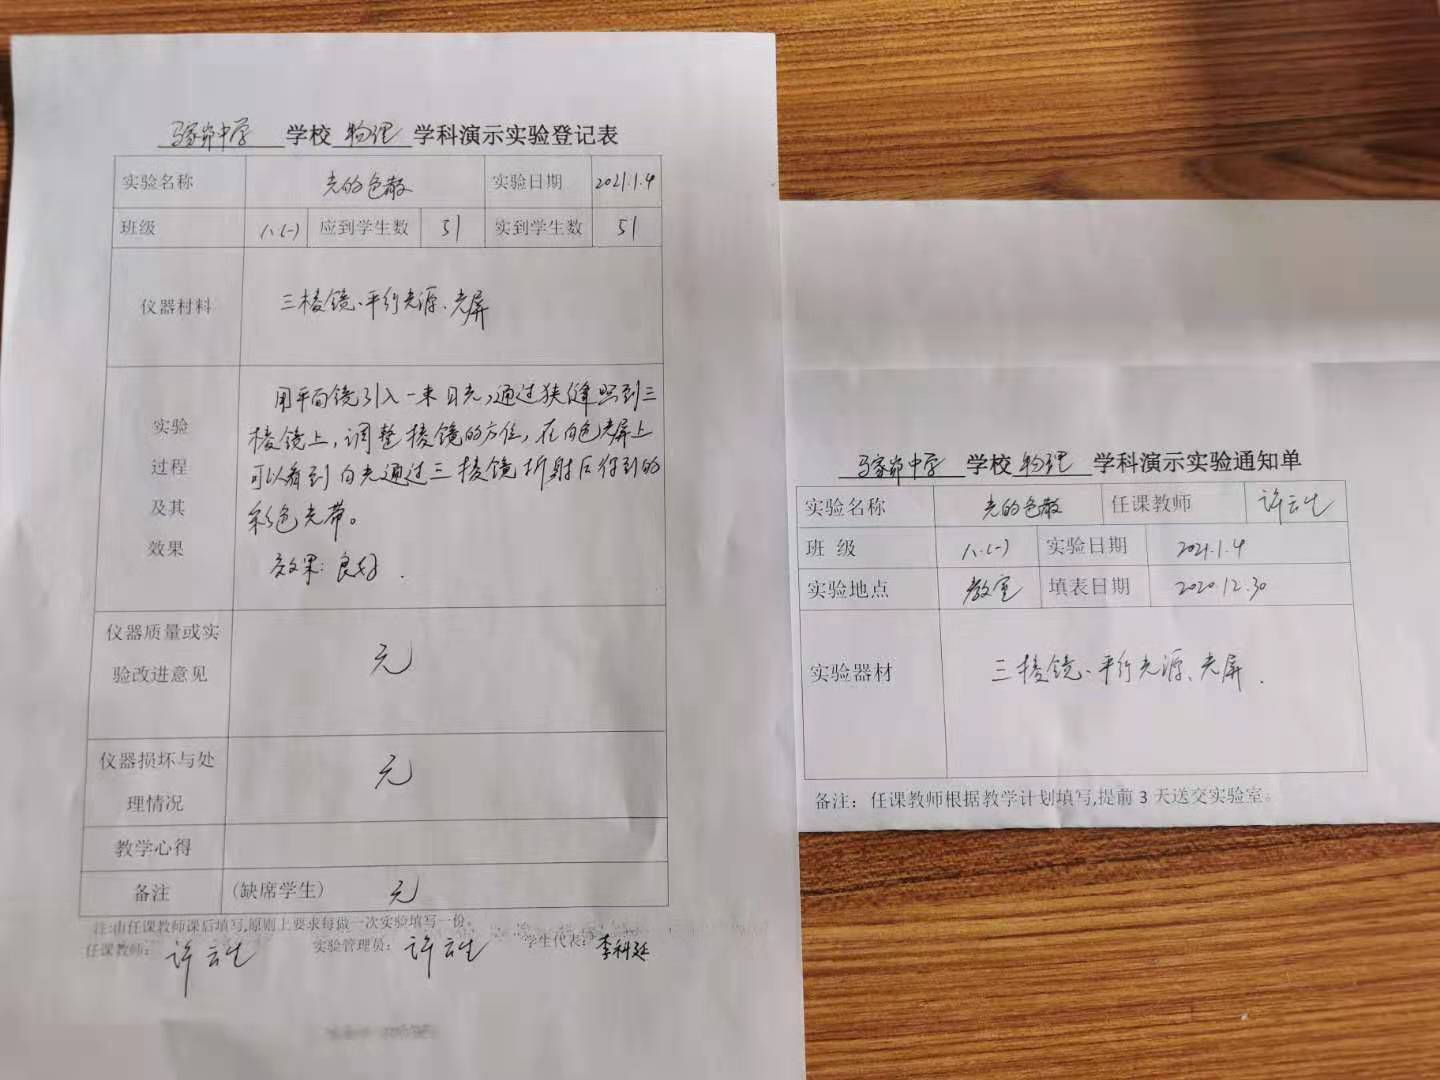 马家峁中学 学校 物理 学科演示实验登记表
实验名称 光的色散 实验日期 2021.1.4
班级 八.(一) 应到学生数 51 实到学生数 51
仪器材料 三棱镜、平行光源、光屏
实验过程及其效果
用平面镜引入一束日光,通过狭缝照到三
棱镜上,调整棱镜的方位,在白色光屏上
可以看到白光通过三棱镜折射后得到的
彩色光带。
效果:良好.
仪器质量或实验改进意见 无
仪器损坏与处理情况 无
教学心得
备注 (缺席学生) 无
注:由任课教师课后填写,原则上要求每做一次实验填写一份。
任课教师: 许云生 实验管理员: 许云生 学生代表: 李科延
马家峁中学 学校 物理 学科演示实验通知单
实验名称 光的色散 任课教师 许云生
班 级 八.(一) 实验日期 2021.1.4
实验地点 教室 填表日期 2020.12.30
实验器材 三棱镜、平行光源、光屏.
备注:任课教师根据教学计划填写,提前 3 天送交实验室。